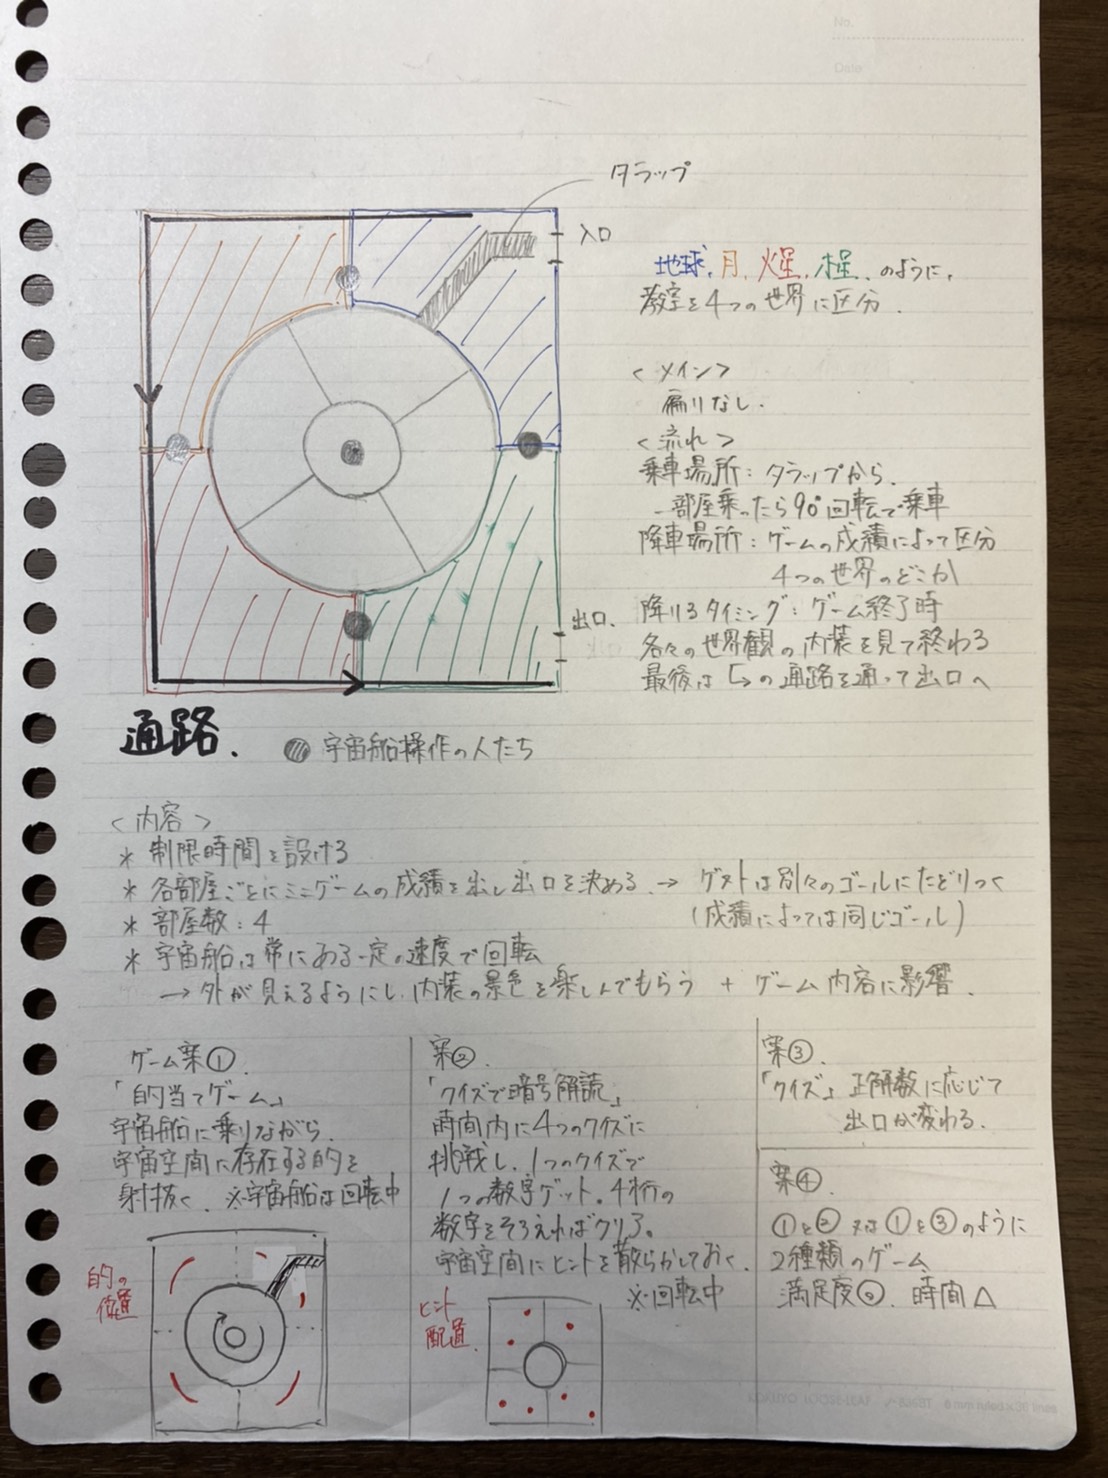 No.
Date
タラップ
入口
地球、月、火星、木星、のように、
教室を4つの世界に区分.
<メイン>
偏りなし.
<流れ>
乗車場所：タラップから.
一部屋乗ったら90°回転で乗車
降車場所：ゲームの成績によって区分
4つの世界のどこか
降りるタイミング：ゲーム終了時
各々の世界観の内装を見て終わる
最後は↳の通路を通って出口へ
出口.
通路.
宇宙船操作の人たち
<内容>
* 制限時間を設ける
* 各部屋ごとにミニゲームの成績を出し出口を決める.→ ゲストは別々のゴールにたどりつく
(成績によっては同じゴール)
* 部屋数：4
* 宇宙船は常にある一定の速度で回転
→外が見えるようにし、内装の景色を楽しんでもらう + ゲーム内容に影響.
ゲーム案①.
「的当てゲーム」
宇宙船に乗りながら.
宇宙空間に存在する的を
射抜く. ※宇宙船は回転中
的の
位置
案②.
「クイズで暗号解読」
時間内に4つのクイズに
挑戦し、1つのクイズで
1つの数字ゲット。4桁の
数字をそろえればクリア。
宇宙空間にヒントを散らかしておく.
※回転中
ヒント
配置.
案③.
「クイズ」正解数に応じて
出口が変わる.
案④
①と② 又は①と③のように
2種類のゲーム
満足度◎. 時間△